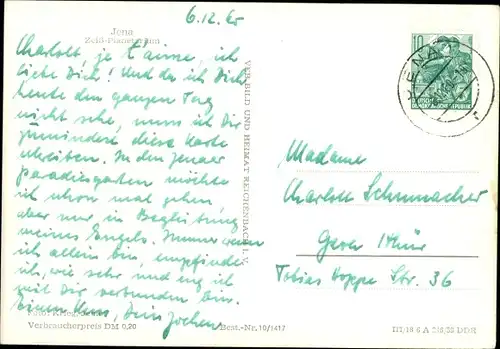 6.12.60
Jena
Zeiß-Planetarium
Charlott, je t'aime, ich
liebe Dich! Und da ich Dich
heute den ganzen Tag
nicht sehe, muss ich Dir
zumindest diese Karte
schreiben. In den Jenaer
Paradiesgarten möchte
ich schon mal gehen
aber nur in Begleitung
meines Engels. Immer wenn
ich allein bin, empfinde
ich, wie sehr und eng ich
mit Dir verbunden bin.
Einen Kuss, Dein Jochen
Verbraucherpreis DM 0,20
Best.-Nr. 10/1417
VERLAG BILD UND HEIMAT REICHENBACH i. V.
10
DEUTSCHE
DEMOKRATISCHE REPUBLIK
JENA
Madame
Charlott Schumacher
Gera Thür
Tobias Hoppe Str. 36
DDR